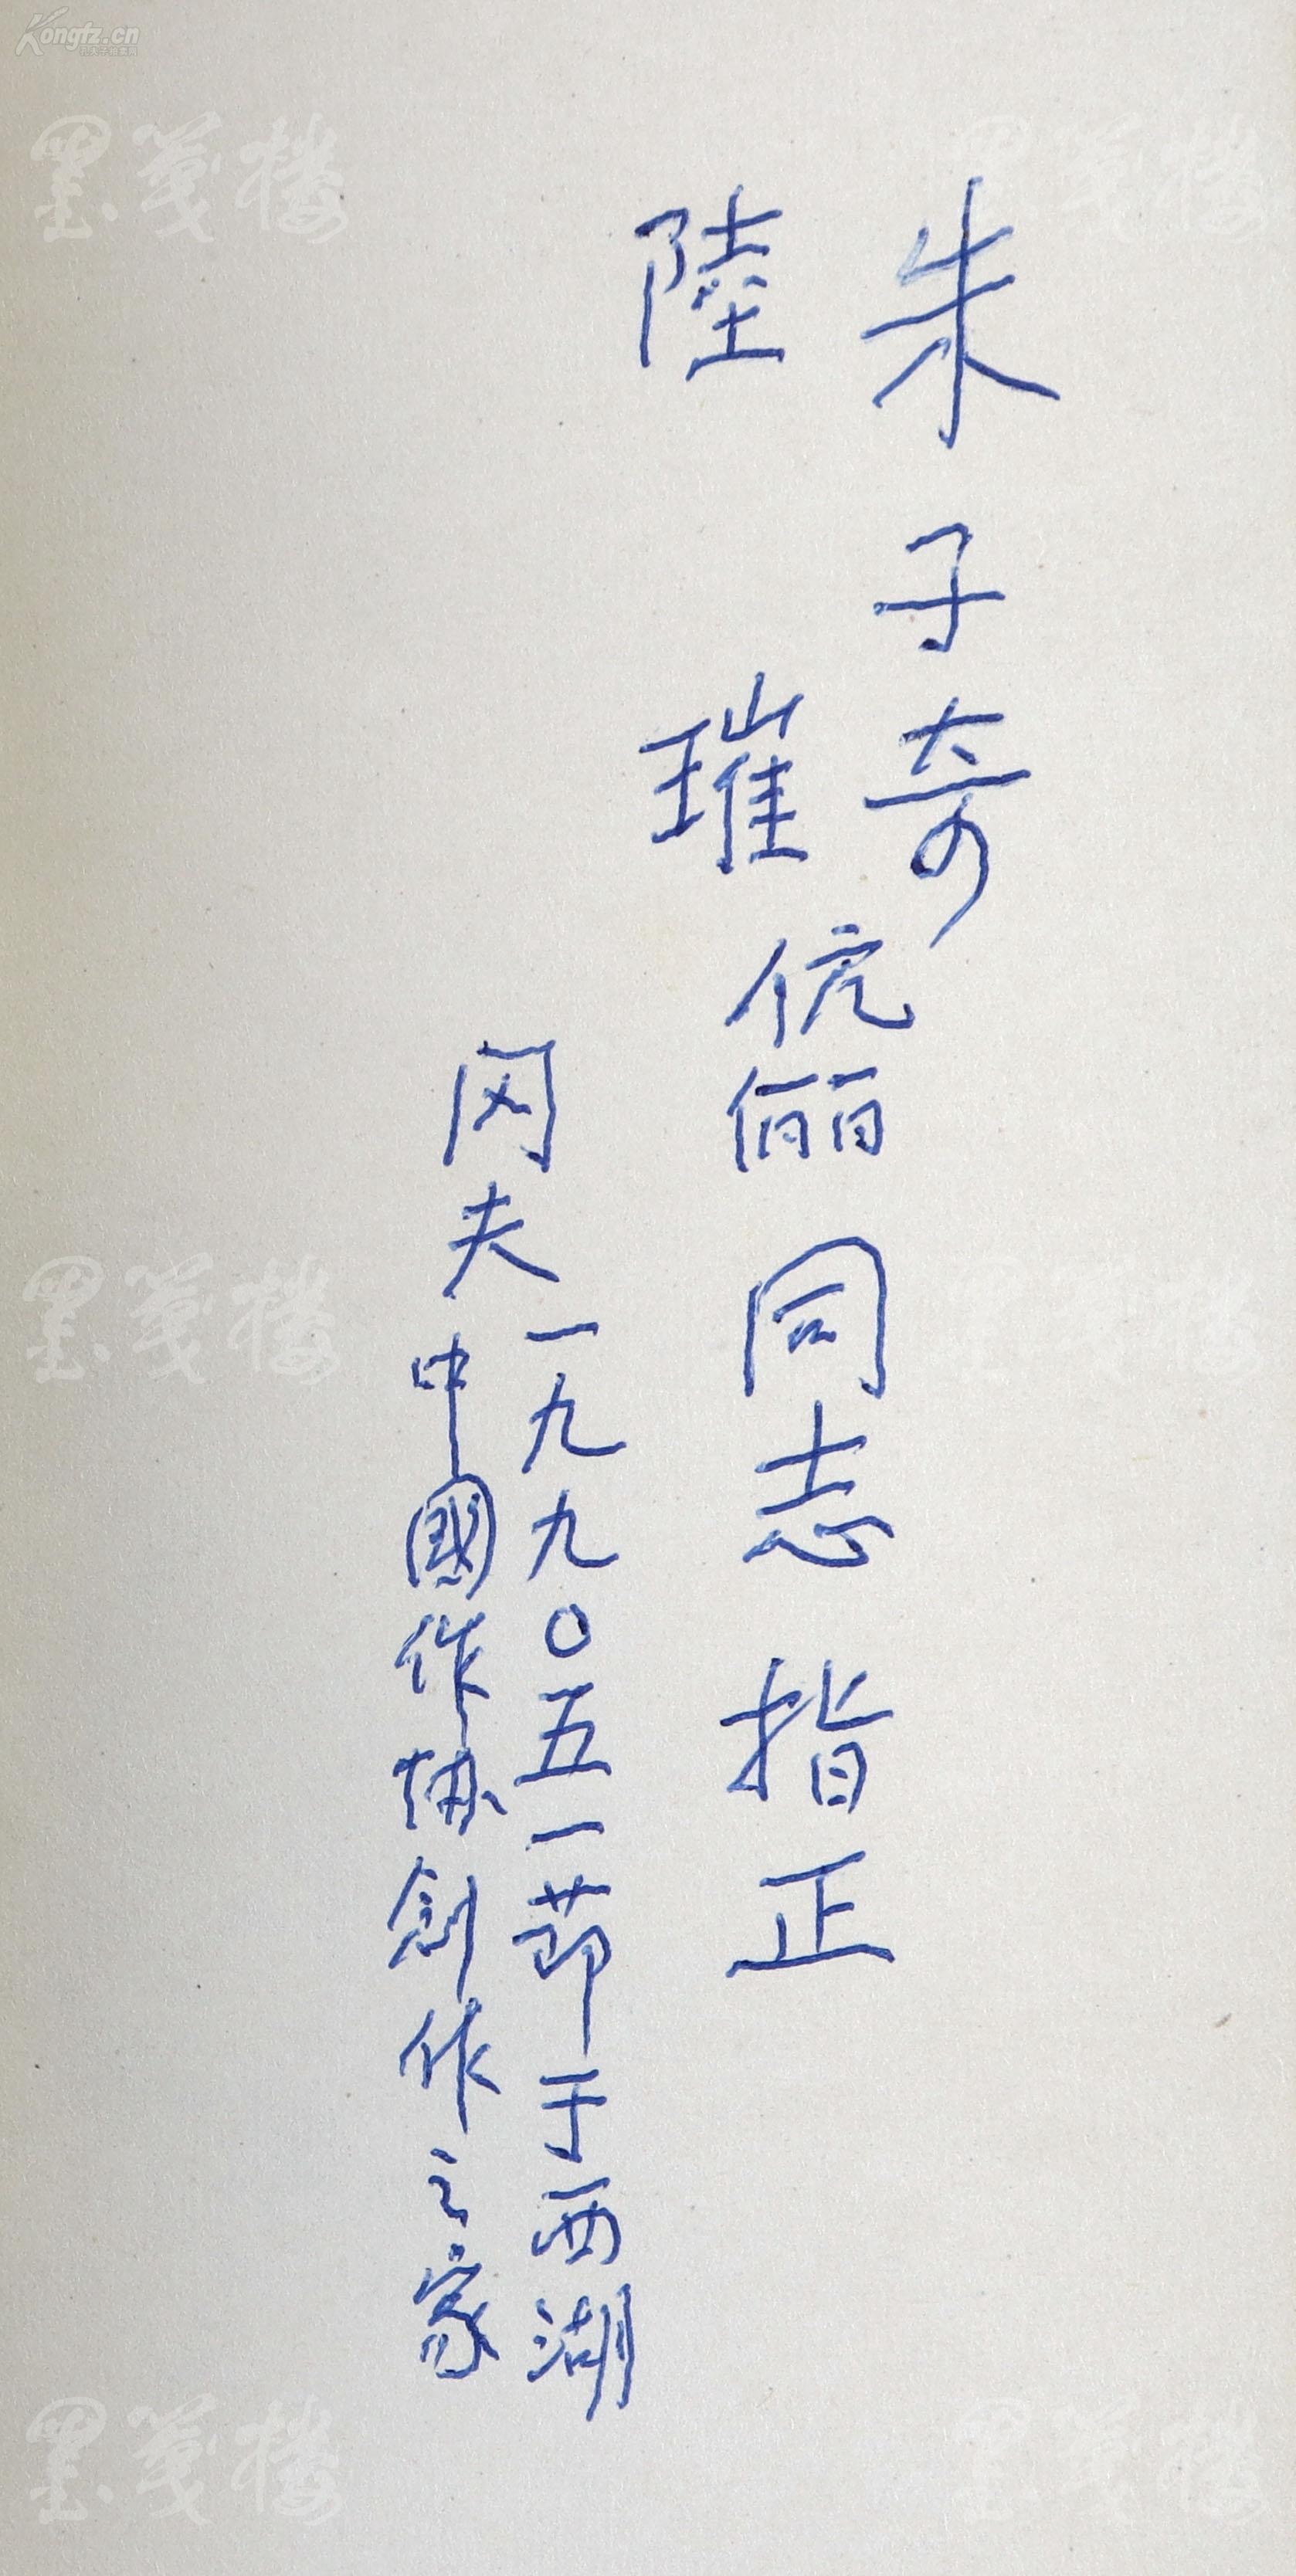 朱子奇
陸璀
伉俪同志 指正
冈夫 一九九〇五一节于西湖
中國作协创作之家
Kongfz.cn
孔夫子旧书网
墨笺楼
墨笺楼
墨笺楼
墨笺楼
墨笺楼
墨笺楼